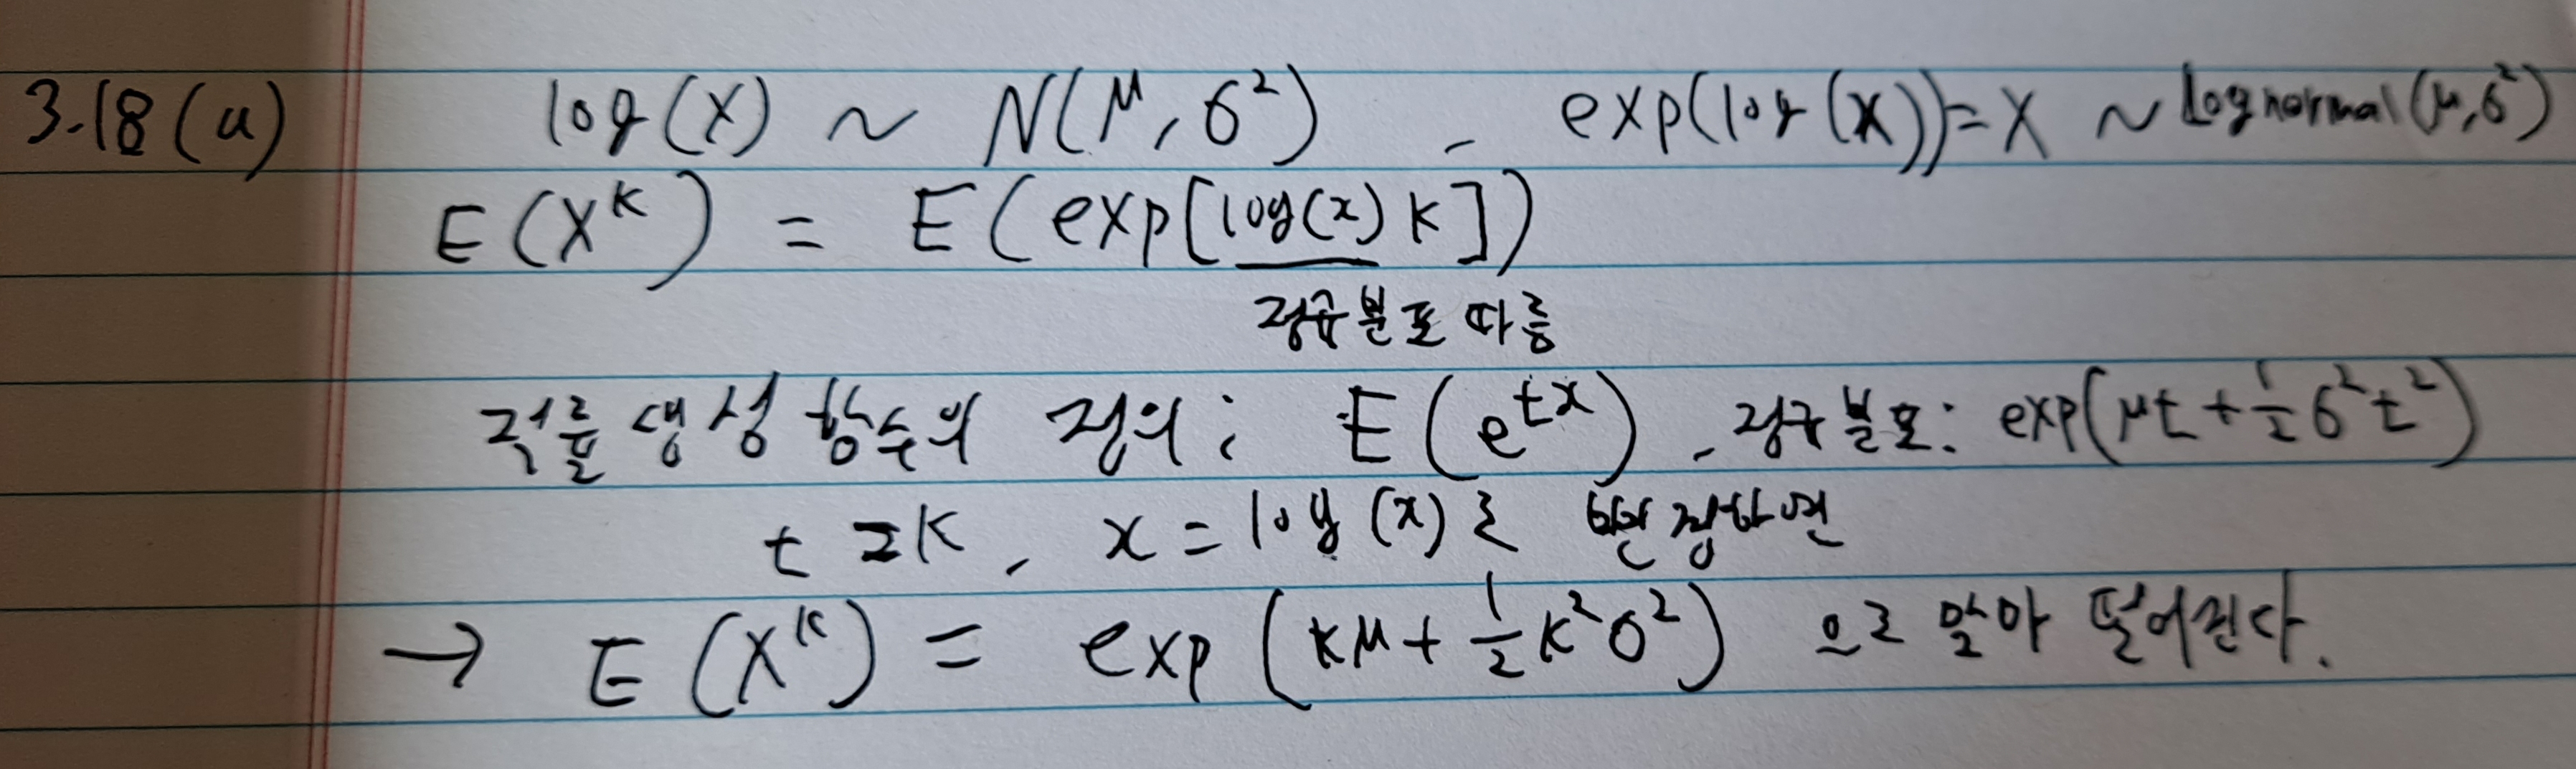 3.18(a) log(X) ~ N(μ, σ²), exp(log(X))=X ~ Lognormal(μ,σ²)
E(X^k) = E(exp[log(x)k])
정규분포 따름
적률생성함수의 정의: E(e^{tx}), 정규분포: exp(μt + 1/2 σ²t²)
t = k, x = log(x)로 변경하면
→ E(X^k) = exp(kμ + 1/2 k²σ²) 으로 맞아 떨어진다.